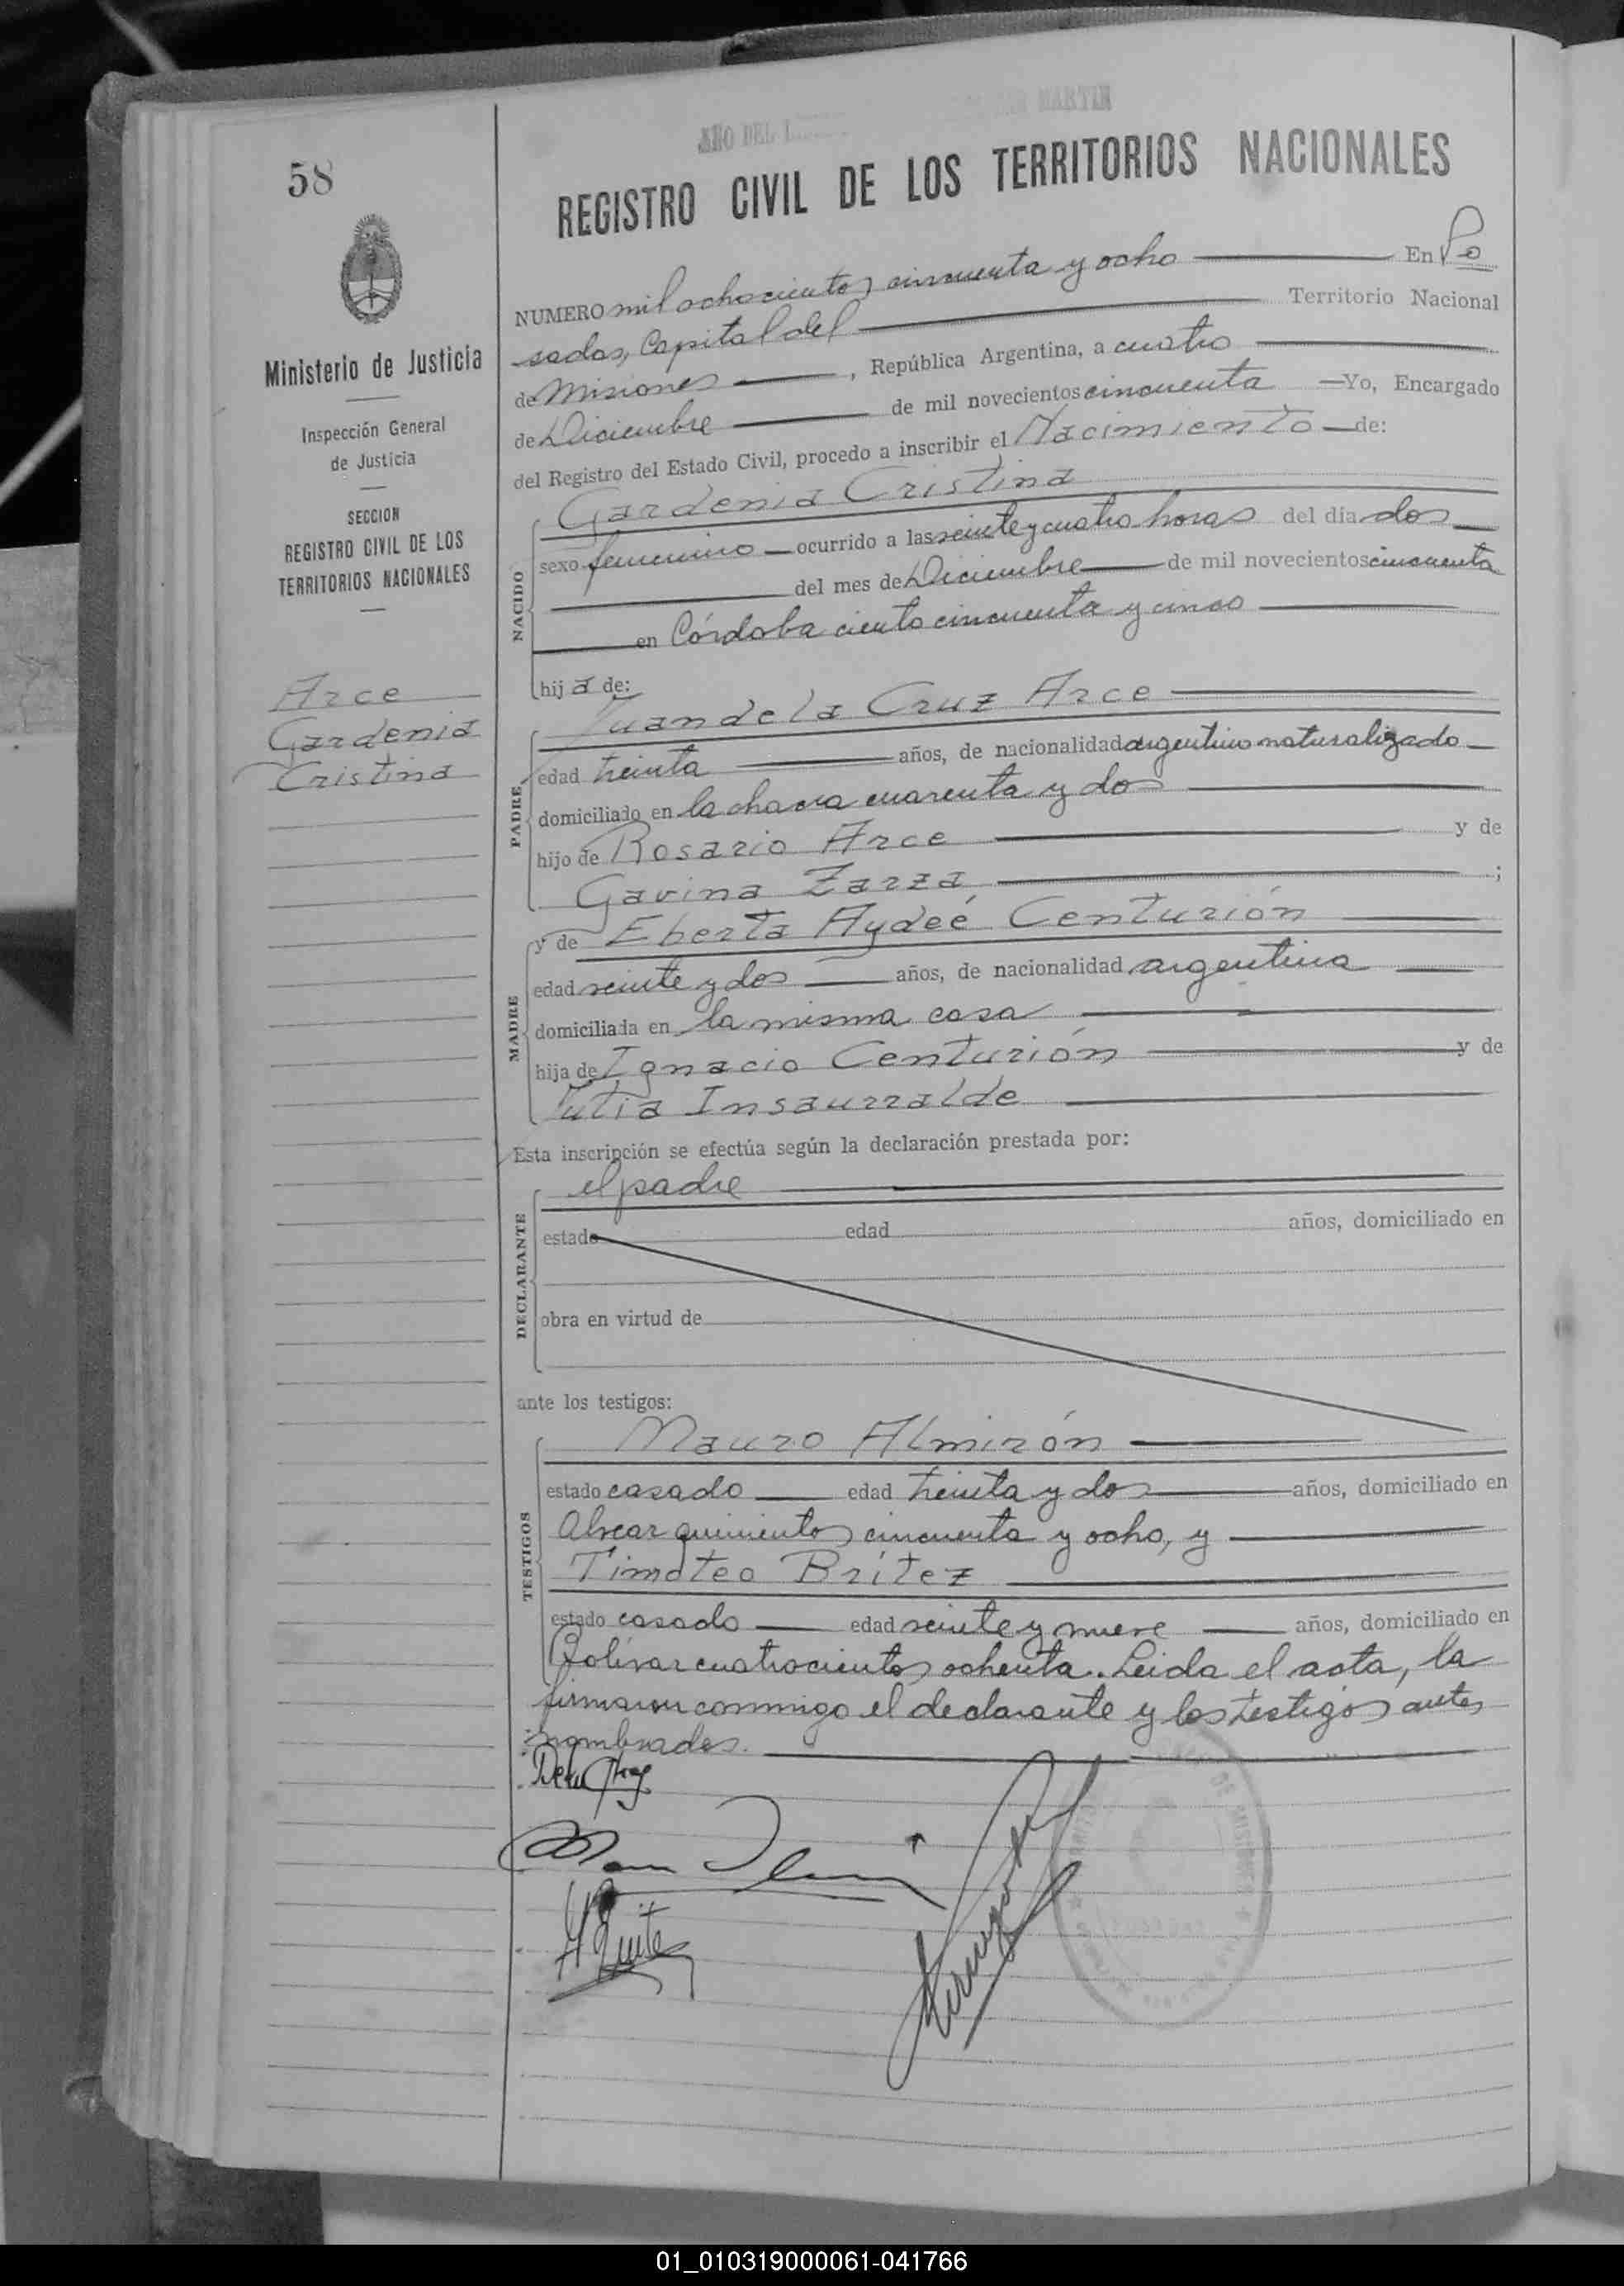 AÑO DEL L
MARTIN
58
REGISTRO CIVIL DE LOS TERRITORIOS NACIONALES
Ministerio de Justicia
Inspección General
de Justicia
SECCION
REGISTRO CIVIL DE LOS
TERRITORIOS NACIONALES
Arce
Gardenia
Cristina
NUMERO mil ochocientos cincuenta y ocho En Po
sadas, Capital del Territorio Nacional
de Misiones, República Argentina, a cuatro
de Diciembre de mil novecientos cincuenta Yo, Encargado
del Registro del Estado Civil, procedo a inscribir el Nacimiento de:
NACIDO
Gardenia Cristina
sexo femenino ocurrido a las veinte y cuatro horas del día dos
del mes de Diciembre de mil novecientos cincuenta
en Córdoba ciento cincuenta y cinco
hija de:
PADRE
Juan de la Cruz Arce
edad treinta años, de nacionalidad argentino naturalizado
domiciliado en la chacra cuarenta y dos
hijo de Rosario Arce y de
Gavina Zarza ;
MADRE
y de Eberta Aydeé Centurión
edad veinte y dos años, de nacionalidad argentina
domiciliada en la misma casa
hija de Ignacio Centurión y de
Julia Insaurralde
Esta inscripción se efectúa según la declaración prestada por:
DECLARANTE
el padre
estado edad años, domiciliado en
obra en virtud de
ante los testigos:
TESTIGOS
Mauro Almirón
estado casado edad treinta y dos años, domiciliado en
Alvear quinientos cincuenta y ocho, y
Timoteo Britez
estado casado edad veinte y nueve años, domiciliado en
Bolívar cuatrocientos ochenta. Leida el acta, la
firmaron conmigo el declarante y los testigos antes
nombrados.
01_010319000061-041766